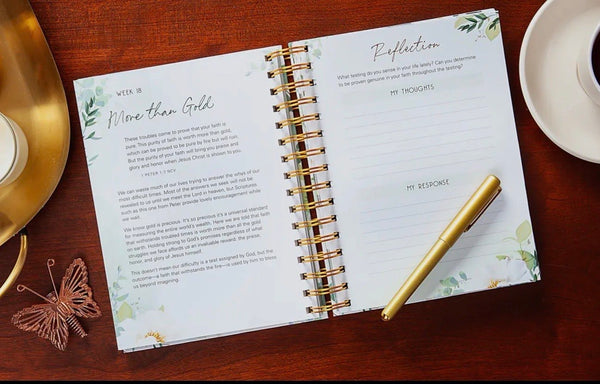 WEEK 18
More than Gold
These troubles come to prove that your faith is
pure. This purity of faith is worth more than gold,
which can be proved to be pure by fire but will ruin.
But the purity of your faith will bring you praise and
glory and honor when Jesus Christ is shown to you.
1 PETER 1:7 NCV
We can waste much of our lives trying to answer the whys of our
most difficult times. Most of the answers we seek will not be
revealed to us until we meet the Lord in heaven, but Scriptures
such as this one from Peter provide lovely encouragement while
we wait.
We know gold is precious. It's so precious it's a universal standard
for measuring the entire world's wealth. Here we are told that faith
that withstands troubled times is worth more than all the gold
on earth. Holding strong to God's promises regardless of what
struggles we face affords us an invaluable reward: the praise,
honor, and glory of Jesus himself.
This doesn't mean our difficulty is a test assigned by God, but the
outcome—a faith that withstands the fire—is used by him to bless
us beyond imagining.
Reflection
What testing do you sense in your life lately? Can you determine
to be proven genuine in your faith throughout the testing?
MY THOUGHTS
MY RESPONSE